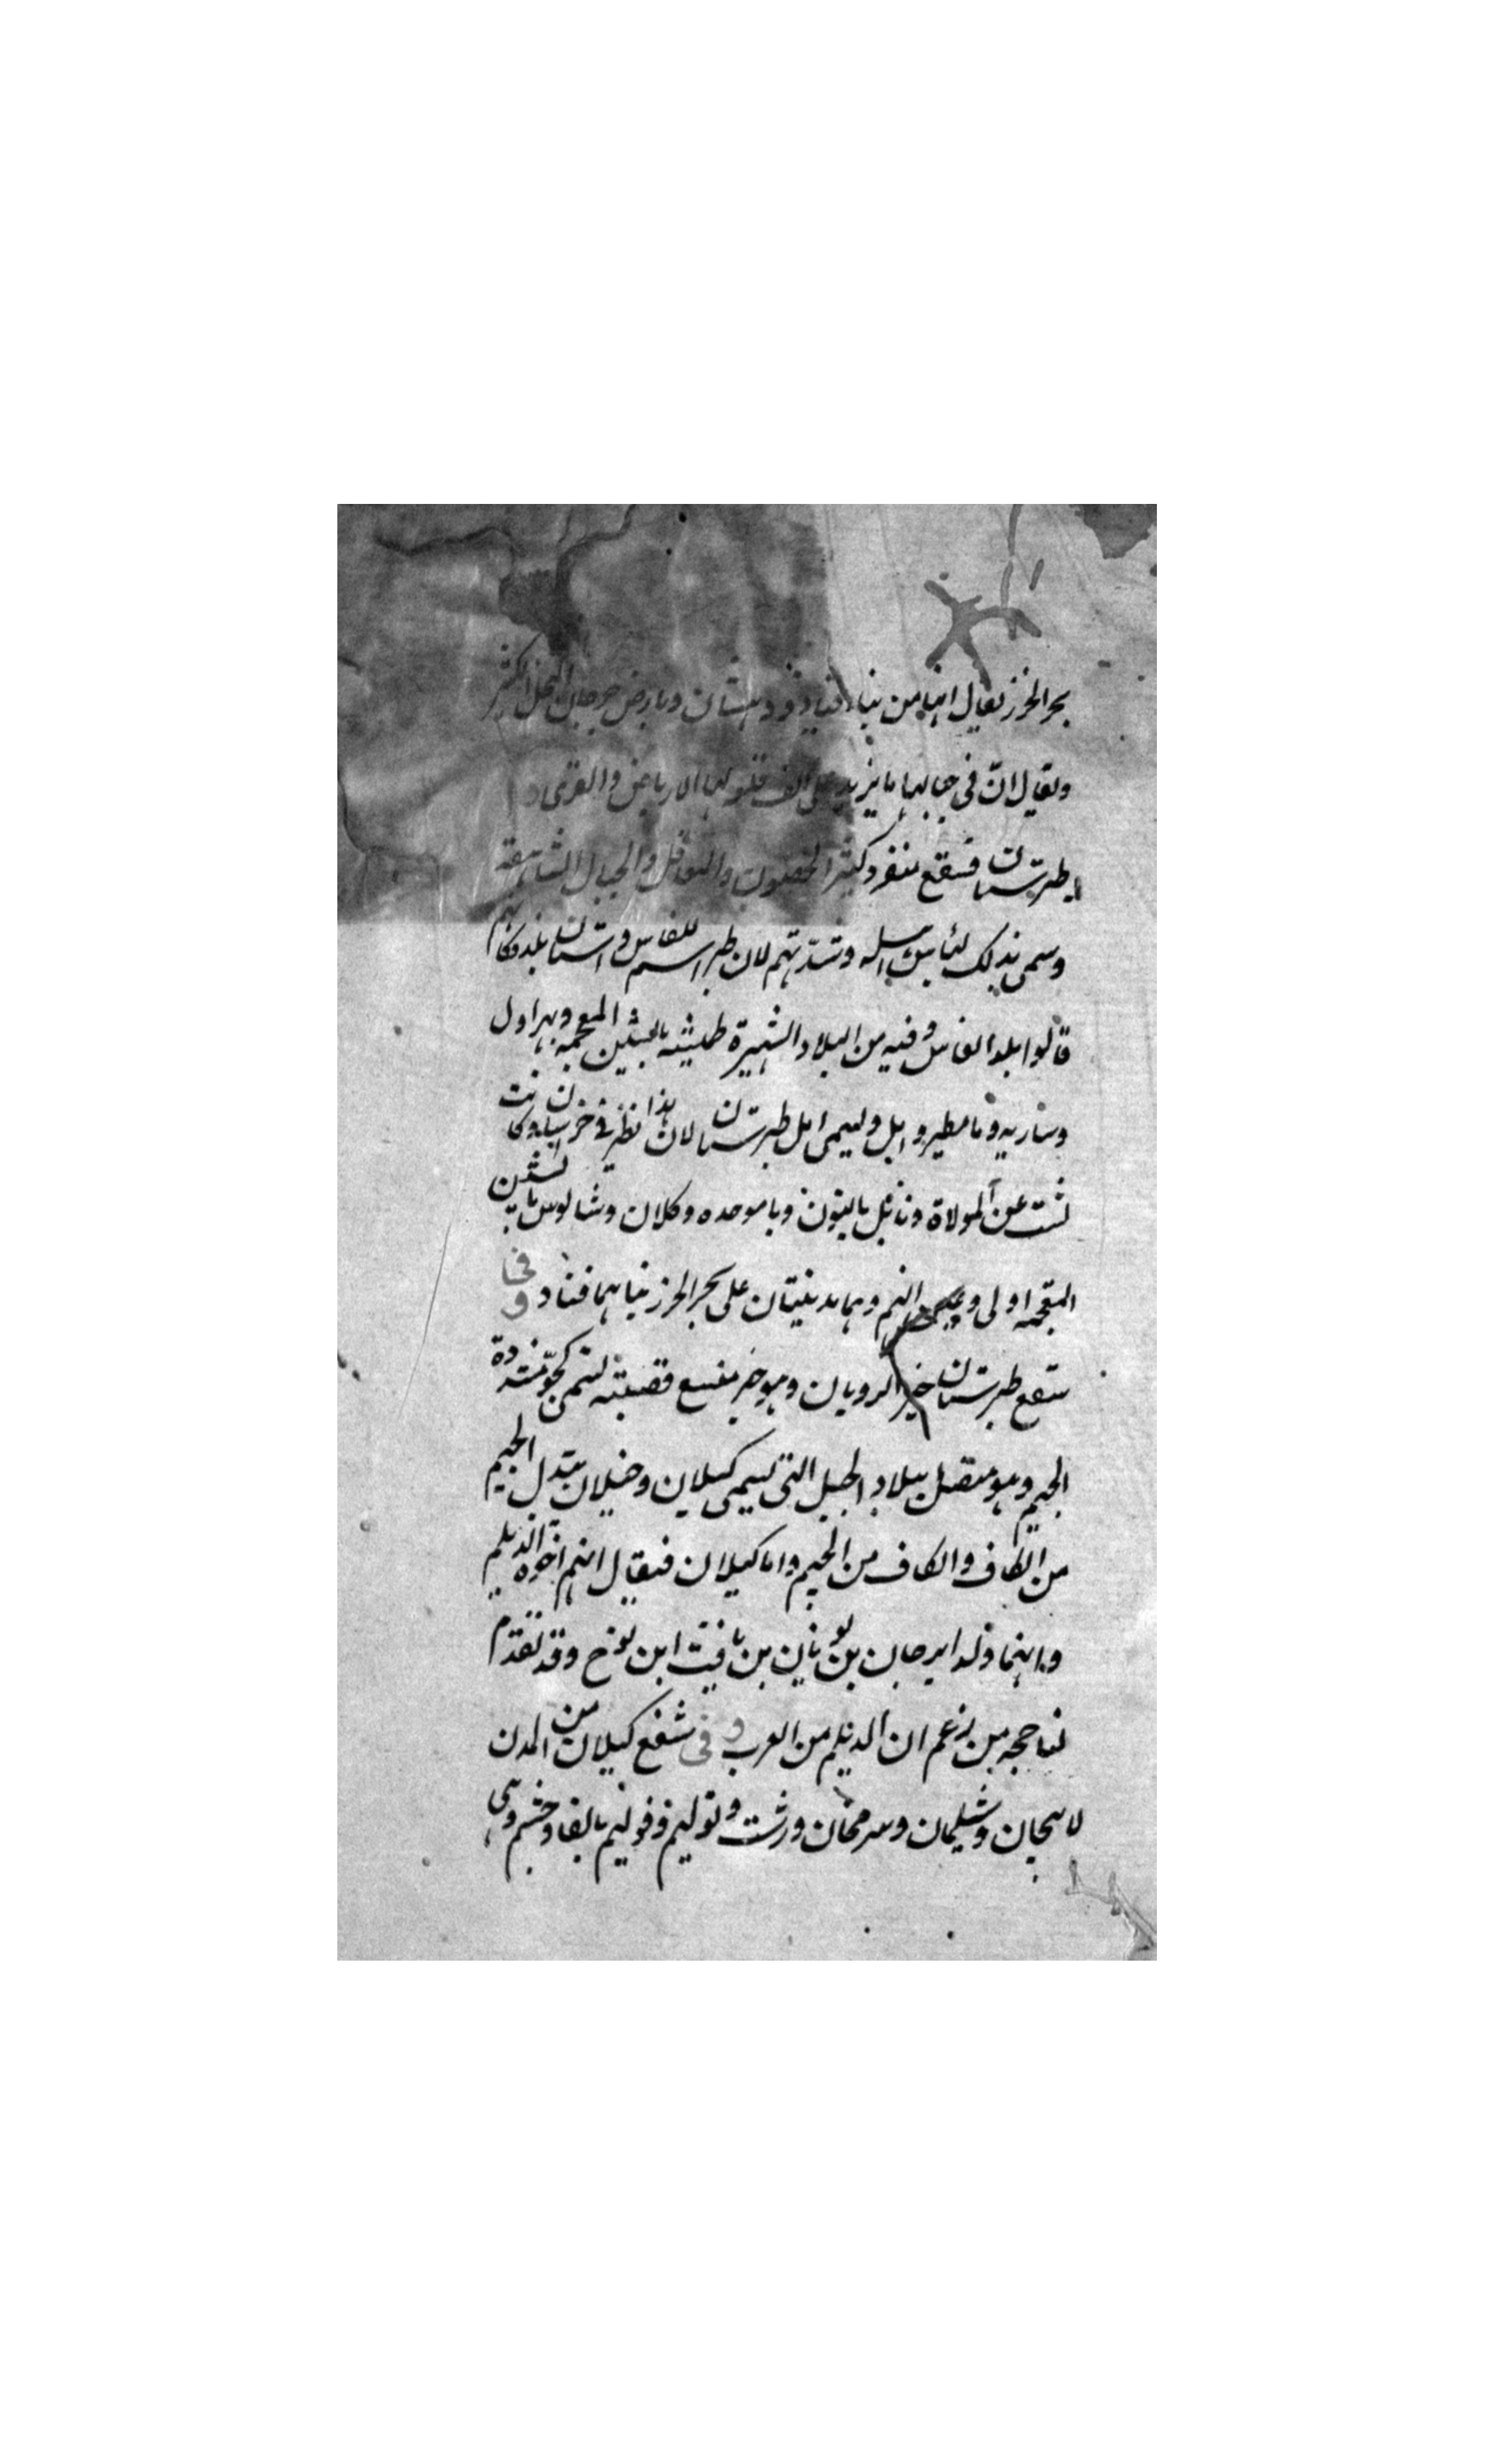 بحر الخزر يقال انها من بناء قباد ودهستان وبارض جرجان النخل الكثير
ويقال ان فى جبالها ما يزيد على الف قلعة لها الارباض والقرى
طبرستان فسقع منفرد كثير الحصون والمعاقل والجبال الشاهقة
وسمى بذلك لباس اهله وشدتهم لان طبر اسم للفاس واستان بلد فكانهم
قالوا بلد الفاس وفيه من البلاد الشهيرة طميشه بالشين المعجمه وهى اول
وساريه ومامطير وامل ويسمى امل طبرستان لان هذا نظر فى خراسان وكانت
المولاة وناتل بالنون وبا موحده وكلان وشالوس بالشين
المعجمه اولى وعين الهم وهما مدينتان على بحر الخزر بناهما قباد وفى
سقع طبرستان خبر الرويان وهو خبر منسع قصبته تسمى كجو مشددة
الجيم وهو متصل ببلاد الجبل التى تسمى كيلان وجيلان بتدل الجيم
من الكاف والكاف من الجيم واما كيلان فيقال انهم اخوة الديلم
وانهما ولد ايرجان بن يونان بن يافت ابن نوح وقد تقدم
لنا حجه من زعم ان الديلم من العرب وفى سقع كيلان من المدن
لاهجان وشيلمان وسرمحان ورشت وتوليم وفوليم بالفا وخشم وهى